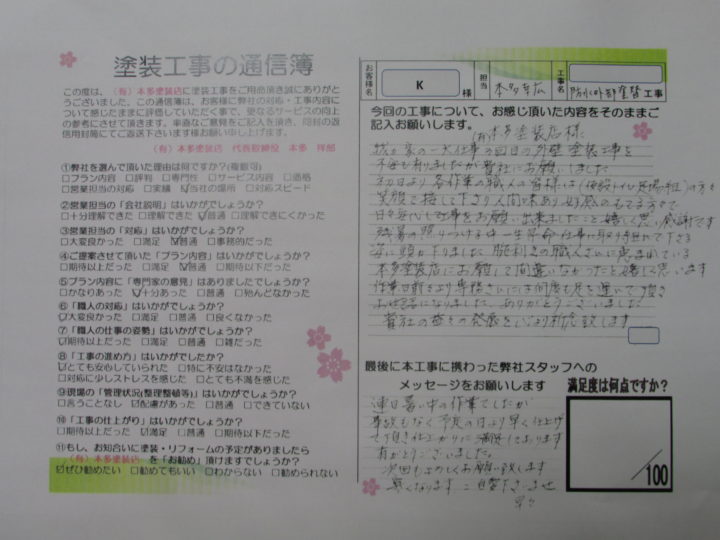 塗装工事の通信簿
この度は、(有)本多塗装店に塗装工事をご用命頂き誠にありがとうございました。この通信簿は、お客様に弊社の対応・工事内容について感じたままに評価していただく事で、更なるサービスの向上の参考にさせて頂きます。率直なご意見をご記入を頂き、同封の返信用封筒にてご返送下さいます様お願い申し上げます。
(有)本多塗装店 代表取締役 本多 祥郎
①弊社を選んで頂いた理由は何ですか?(複数可)
□プラン内容 □評判 □専門性 □サービス内容 □価格
□営業担当の対応 □実績 ☑当社の場所 □対応スピード
②営業担当の「会社説明」はいかがでしょうか?
□十分理解できた □理解できた ☑普通 □理解できにくかった
③営業担当の「対応」はいかがでしょうか?
□大変良かった □満足 ☑普通 □事務的だった
④ご提案させて頂いた「プラン内容」はいかがでしょうか?
□期待以上だった □満足 ☑普通 □期待以下だった
⑤プラン内容に「専門家の意見」はありましたでしょうか?
□かなりあった ☑十分あった □普通 □殆んどなかった
⑥「職人の対応」はいかがでしょうか?
☑大変良かった □満足 □普通 □良くなかった
⑦「職人の仕事の姿勢」はいかがでしょうか?
☑期待以上だった □満足 □普通 □雑だった
⑧「工事の進め方」はいかがでしたか?
☑とても安心していられた □特に不安はなかった
□対応に少しストレスを感じた □とても不満を感じた
⑨現場の「管理状況(整理整頓等)」はいかがでしょうか?
□言うことなし ☑配慮があった □普通 □できていない
⑩「工事の仕上がり」はいかがでしょうか?
□期待以上だった ☑満足 □普通 □期待以下だった
⑪もし、お知合いに塗装・リフォームの予定がありましたら
(有)本多塗装店 を「お勧め」頂けますでしょうか?
☑ぜひ勧めたい □勧めてもいい □わからない □勧められない
お客様名 K 様 担当 本多 工事名 防水外部塗替工事
今回の工事について、お感じ頂いた内容をそのままご記入お願いします。
(有)本多塗装店様
我が家の一大仕事の四回目の外壁塗装工事を
不安も有りましたが貴社にお願いしました
初日より各作業の職人の皆様は(仮設トイレ 足場組)の方
笑顔で接して下さり人間味あり好感のもてる方々で
日々安心し仕事をお願い出来ましたこと嬉しく思い感謝です
照りつける中一生懸命仕事に取り組まれて下さる
姿に頭が下りました 腕利きの職人さんに恵まれている
本多塗装店にお願いして間違いなかったと嬉しく思います
作業日前より専務さんには何度も足を運んで頂き
お世話になりました、ありがとうございました
貴社の益々の発展を心より祈念致します
最後に本工事に携わった弊社スタッフへの
メッセージをお願いします
満足度は何点ですか?
連日暑い中の作業でしたが
事故もなく予定の日より早く仕上げ
て頂き仕上がりにご満足しております
有がとうございました。
次回もよろしくお願い致します
暑くなります ご自愛下さいませ
早々
/100